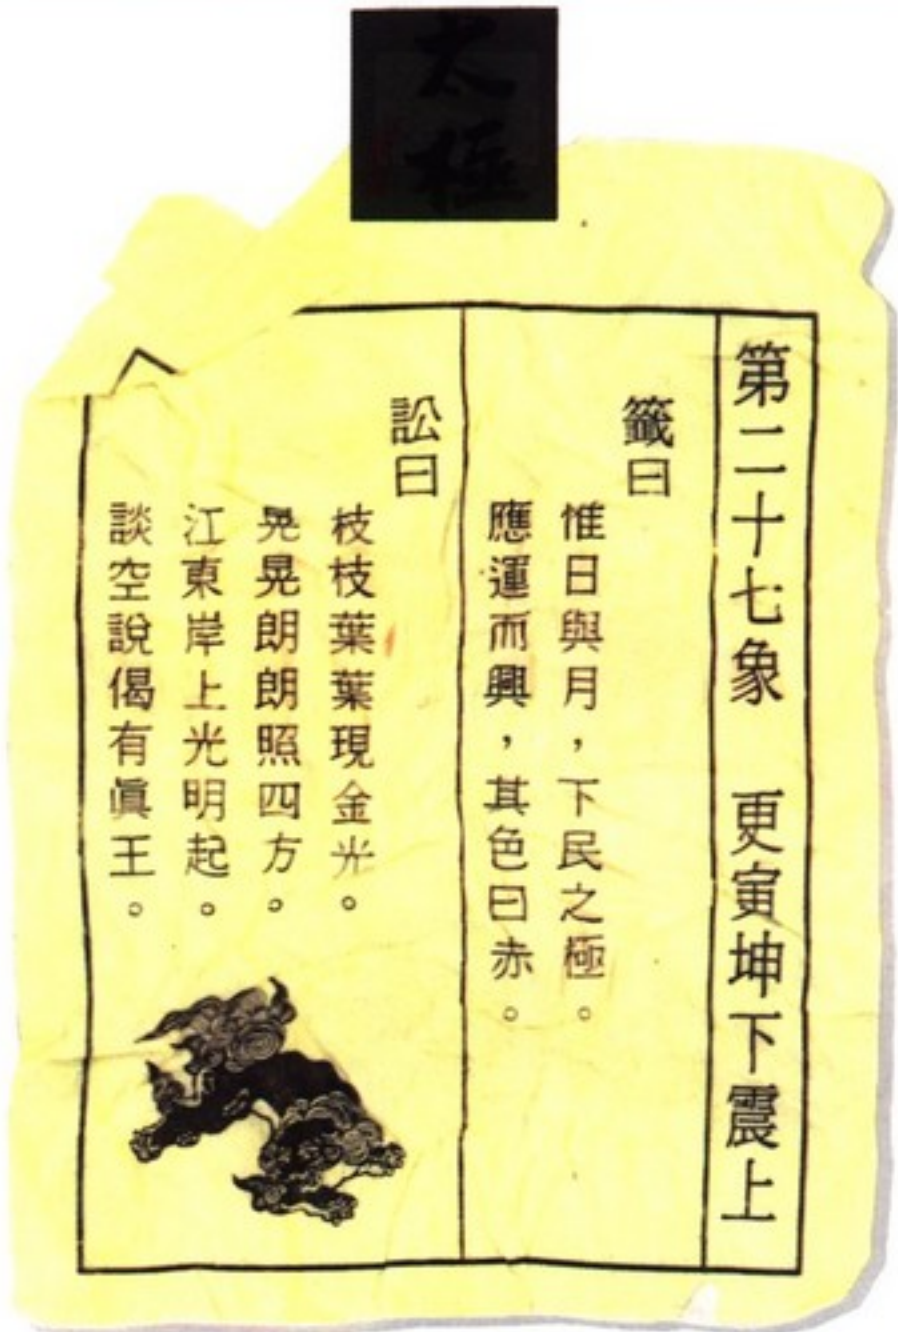 太極
第二十七象 更寅坤下震上
籤曰
惟日與月，下民之極。
應運而興，其色曰赤。
訟曰
枝枝葉葉現金光。
晃晃朗朗照四方。
江東岸上光明起。
談空說偈有眞王。